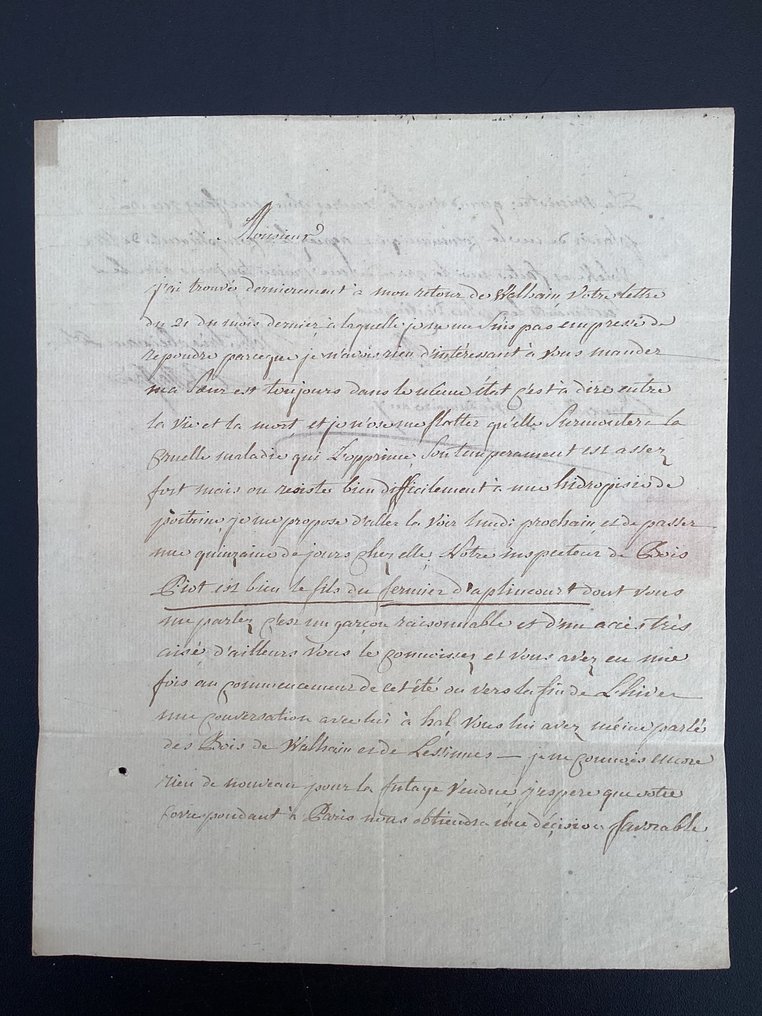 Monsieur
j'ai trouvé dernierement à mon retour de Walhain votre lettre
du 21 du mois dernier, à laquelle je ne me suis pas empressé de
repondre parceque je n'avois rien d'intéressant à vous mander
ma sœur est toujours dans le même état c'est à dire entre
la vie et la mort et je n'ose me flatter qu'elle surmontera la
cruelle maladie qui l'opprime, son temperament est assez
fort mais on resiste bien difficilement à une hidropisie de
poitrine, je me propose d'aller la voir lundi prochain, et de passer
une quinzaine de jours chez elle, Notre inspecteur de Bois
Piot est bien le fils du fermier d'aplincourt dont vous
me parlez c'est un garçon raisonnable et d'un accès très
aisé d'ailleurs vous le connoissez et vous avez eu une
fois au commencement de cet été ou vers la fin de L'hiver
une conversation avec lui à hal vous lui avez même parlé
des Bois de Walhain et de Lesinnes — je ne connois encore
rien de nouveau pour la futaye vendue, j'espere que votre
correspondant à Paris nous obtiendra une décision favorable